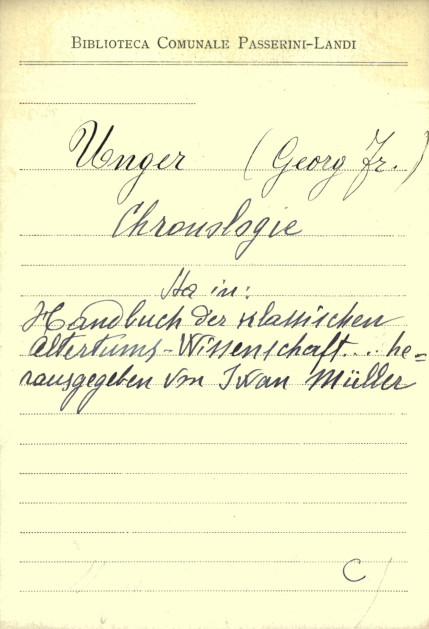 BIBLIOTECA COMUNALE PASSERINI-LANDI
Unger (Georg Fr.)
Chronologie
Sta in:
Handbuch der klassischen
Altertums-Wissenschaft... he=
rausgegeben von Iwan Müller
C